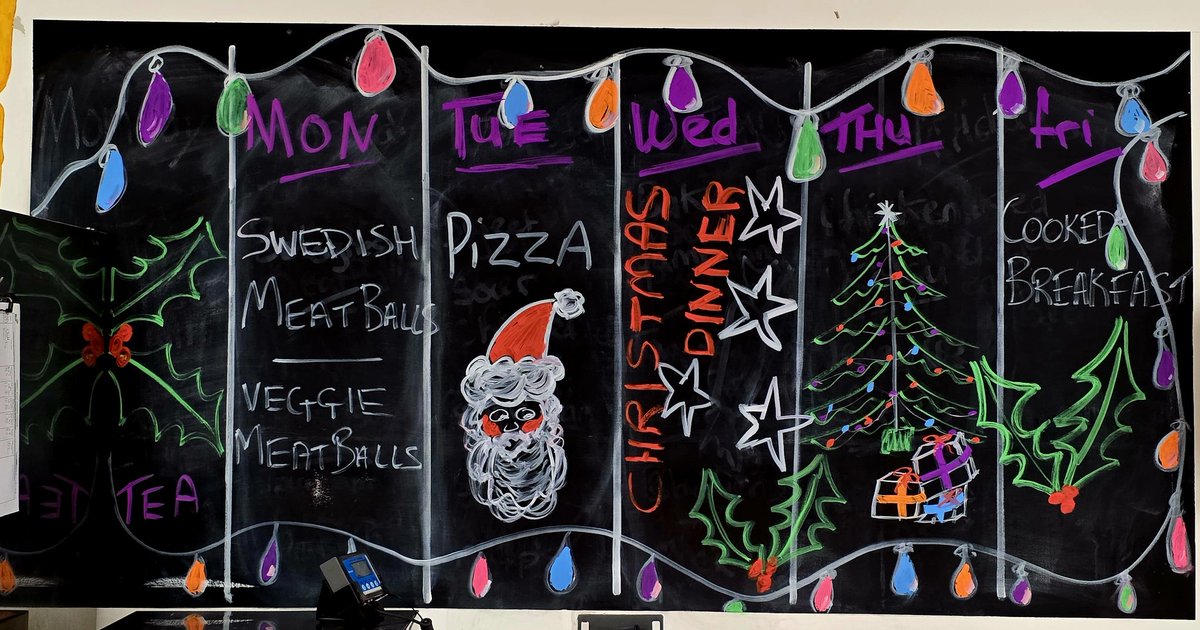 MON
SWEDISH
MEATBALLS
VEGGIE
MEATBALLS
TEA
TUE
PIZZA
Wed
CHRISTMAS
DINNER
THU
fri
COOKED
BREAKFAST